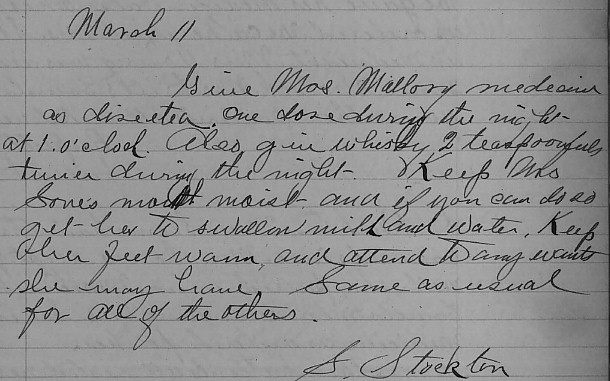 March 11
Give Mrs. Mallory medicine
as directed. One dose during the night-
at 1. o'clock. Also give whisky 2 teaspoonfuls
twice during the night. Keep Mrs
Jones mouth moist and if you can do so
get her to swallow milk and water. Keep
her feet warm, and attend to any wants
she may have. Same as usual
for all of the others.
S. Stockton